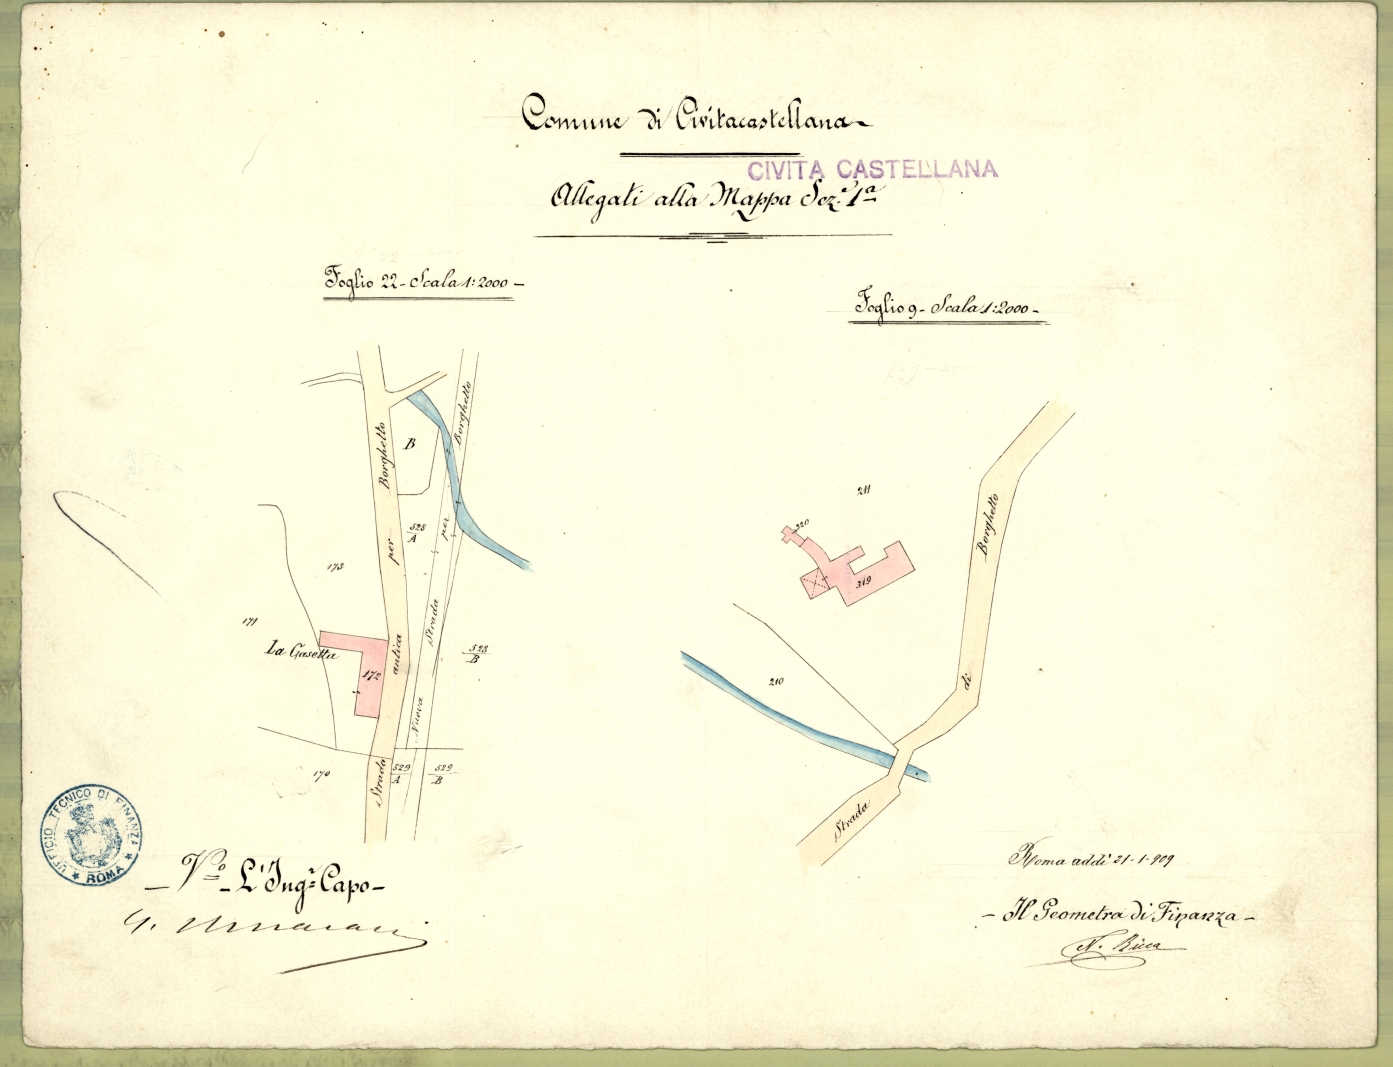 Comune di Civitacastellana
CIVITA CASTELLANA
Allegati alla Mappa Sez.e 1a
Foglio 22 - Scala 1:2000 -
Borghetto
Borghetto
B
528
A
per
per
173
171
La Casetta
172
antica
Strada
528
B
Nuova
170
Strada
529
A
529
B
Foglio 9 - Scala 1:2000 -
211
320
319
Borghetto
210
di
Strada
UFFICIO TECNICO DI FINANZA
ROMA
- Vo - L'Ingre Capo -
G.
Roma addì 21-1-909
- Il Geometra di Finanza -
N. Ricca